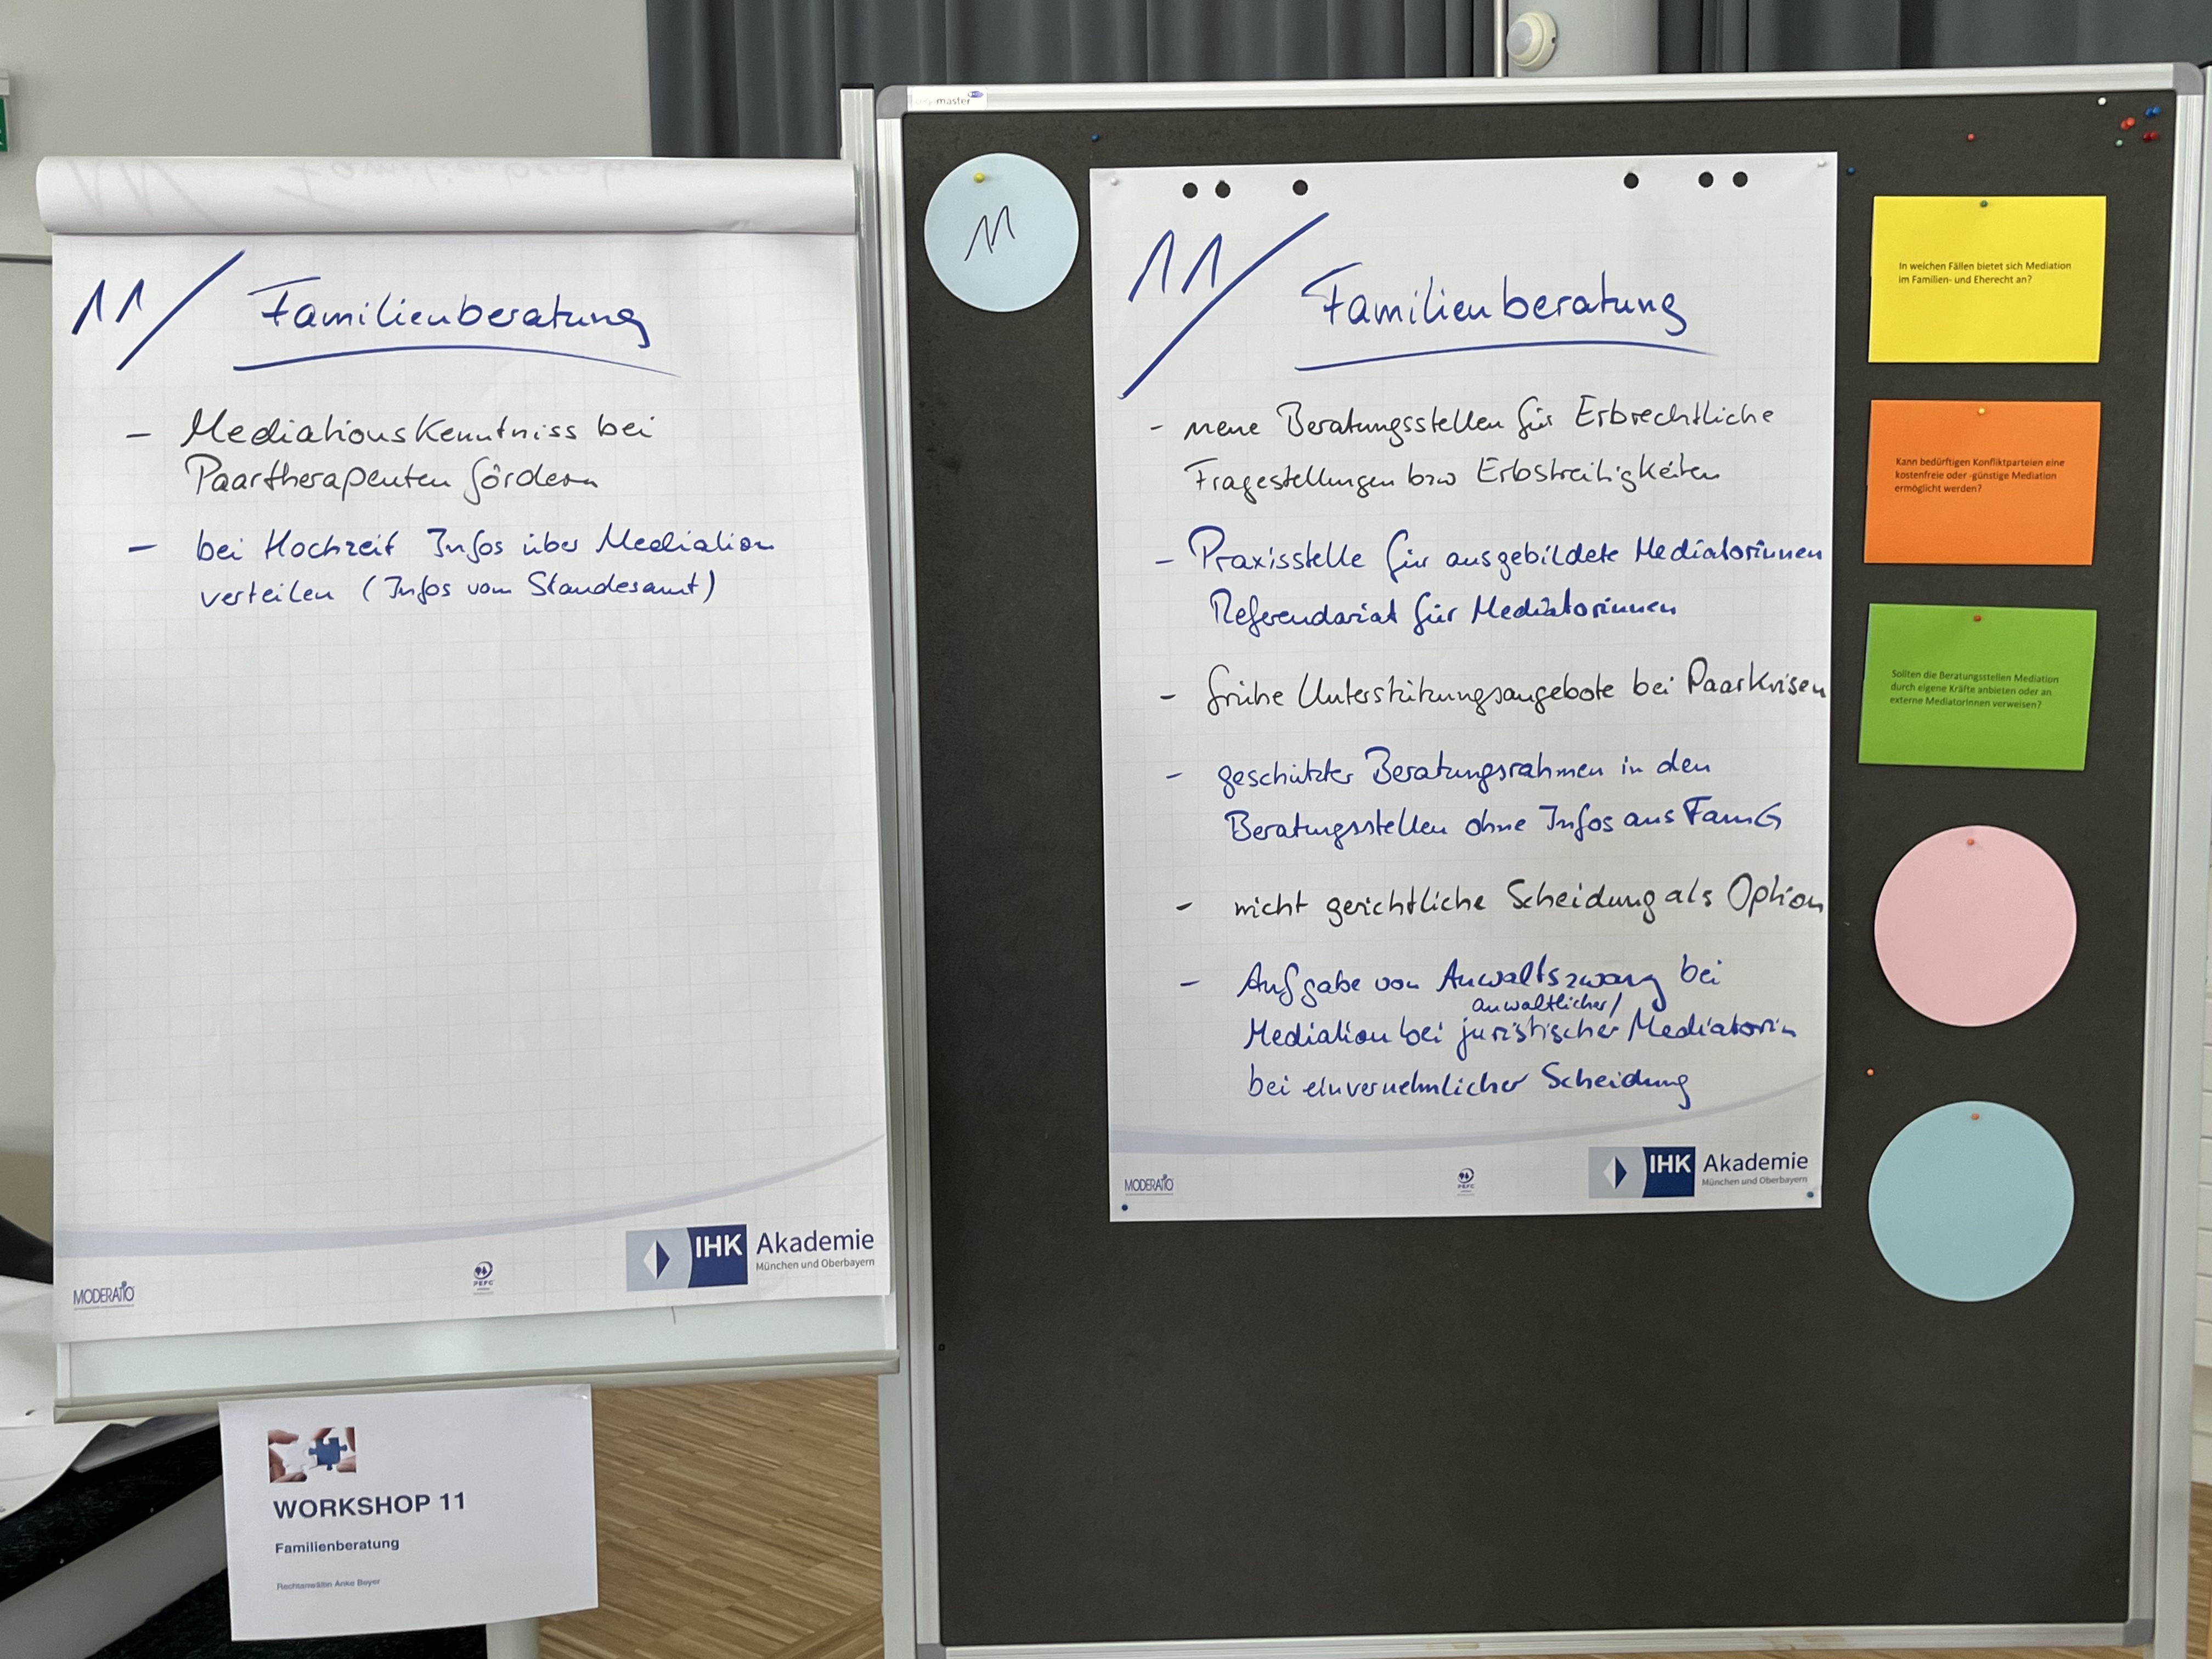 11/ Familienberatung
- Mediationskenntniss bei
Paartherapeuten fördern
- bei Hochzeit Infos über Mediation
verteilen (Infos vom Standesamt)
MODERATIO
PEFC
IHK Akademie
München und Oberbayern
WORKSHOP 11
Familienberatung
Rechtsanwältin Anke Beyer
master
11
11/ Familienberatung
- neue Beratungsstellen für Erbrechtliche
Fragestellungen bzw Erbstreitigkeiten
- Praxisstelle für ausgebildete Mediatorinnen
Referendariat für Mediatorinnen
- frühe Unterstützungsangebote bei Paarkrisen
- geschützter Beratungsrahmen in den
Beratungsstellen ohne Infos aus FamG
- nicht gerichtliche Scheidung als Option
- Aufgabe von Anwaltszwang bei
anwaltlicher/
Mediation bei juristischer Mediatorin
bei einvernehmlicher Scheidung
MODERATIO
PEFC
IHK Akademie
München und Oberbayern
In welchen Fällen bietet sich Mediation
im Familien- und Eherecht an?
Kann bedürftigen Konfliktparteien eine
kostenfreie oder -günstige Mediation
ermöglicht werden?
Sollten die Beratungsstellen Mediation
durch eigene Kräfte anbieten oder an
externe MediatorInnen verweisen?